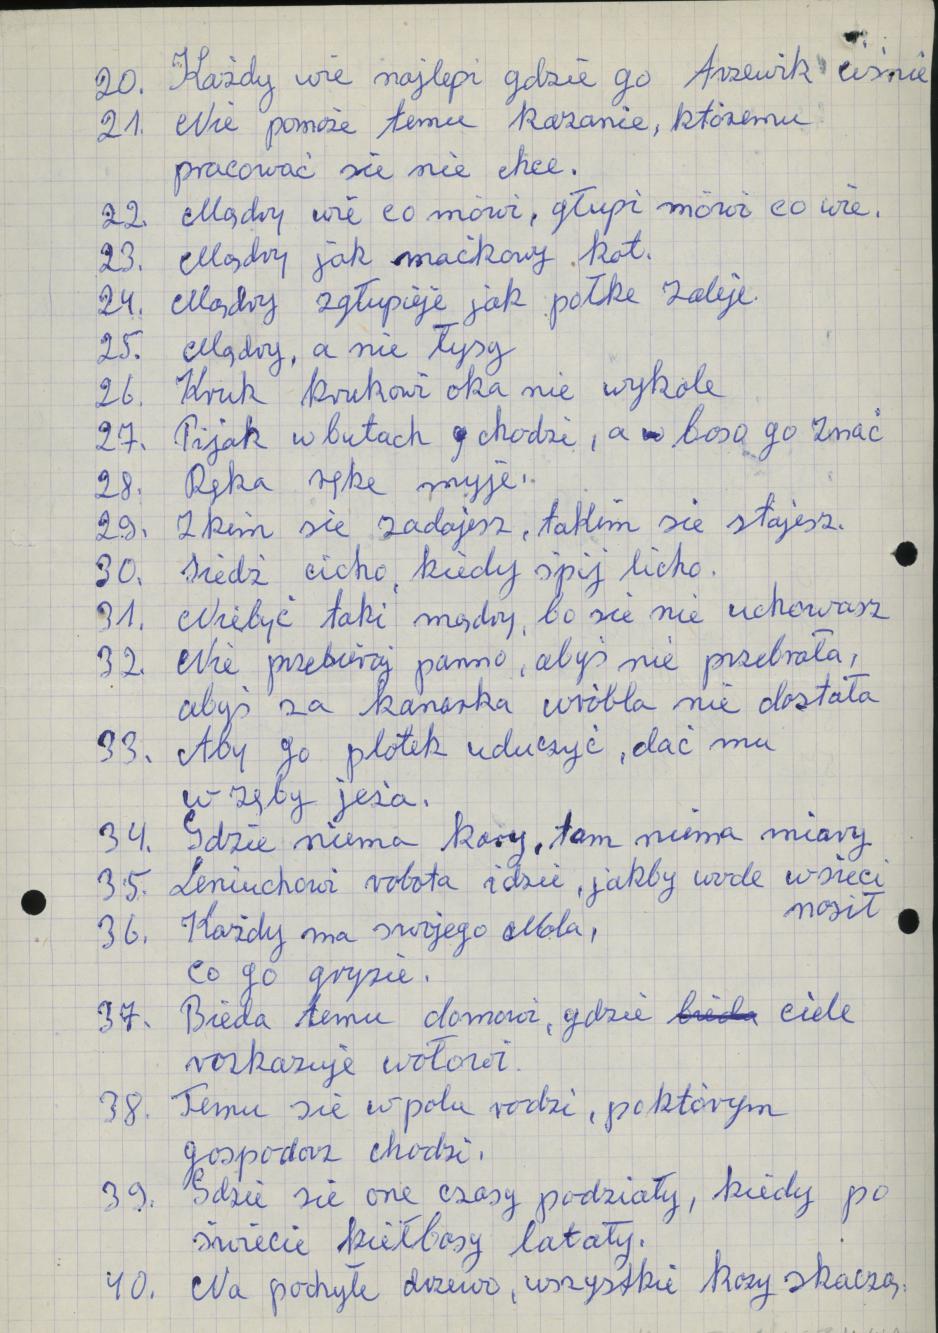 20. Każdy wie najlepi gdzie go trzewik ciśnie
21. Nie pomoże temu kazanie, któremu
pracować sie nie chce.
22. Mądry wie co mówi, głupi mówi co wie.
23. Mądry jak maćkowy kot.
24. Mądry zgłupieje jak połke zaleje.
25. Mądry, a nie łysy
26. Kruk krukowi oka nie wykole
27. Pijak w butach chodzi, a boso go znać
28. Ręka ręke myje.
29. Z kim sie zadajesz, takim sie stajesz.
30. Siedź cicho, kiedy śpij licho.
31. Niebyć taki mądry, bo sie nie uchowasz
32. Nie przebieraj panno, abyś nie przebrała,
abyś za kanarka wróbla nie dostała
33. Aby go plotek uduczyć, dać mu
w zęby jeża.
34. Gdzie niema kary, tam niema miary
35. Leniuchowi robota idzie, jakby wode w sieci
nosił
36. Każdy ma swojego Mola,
co go gryzie.
37. Bieda temu domowi, gdzie bieda ciele
rozkazuje wołowi.
38. Temu sie w polu rodzi, po którym
gospodarz chodzi.
39. Gdzie sie one czasy podziały, kiedy po
świecie kiełbasy latały.
40. Na pochyłe drzewo, wszystkie kozy skaczą.